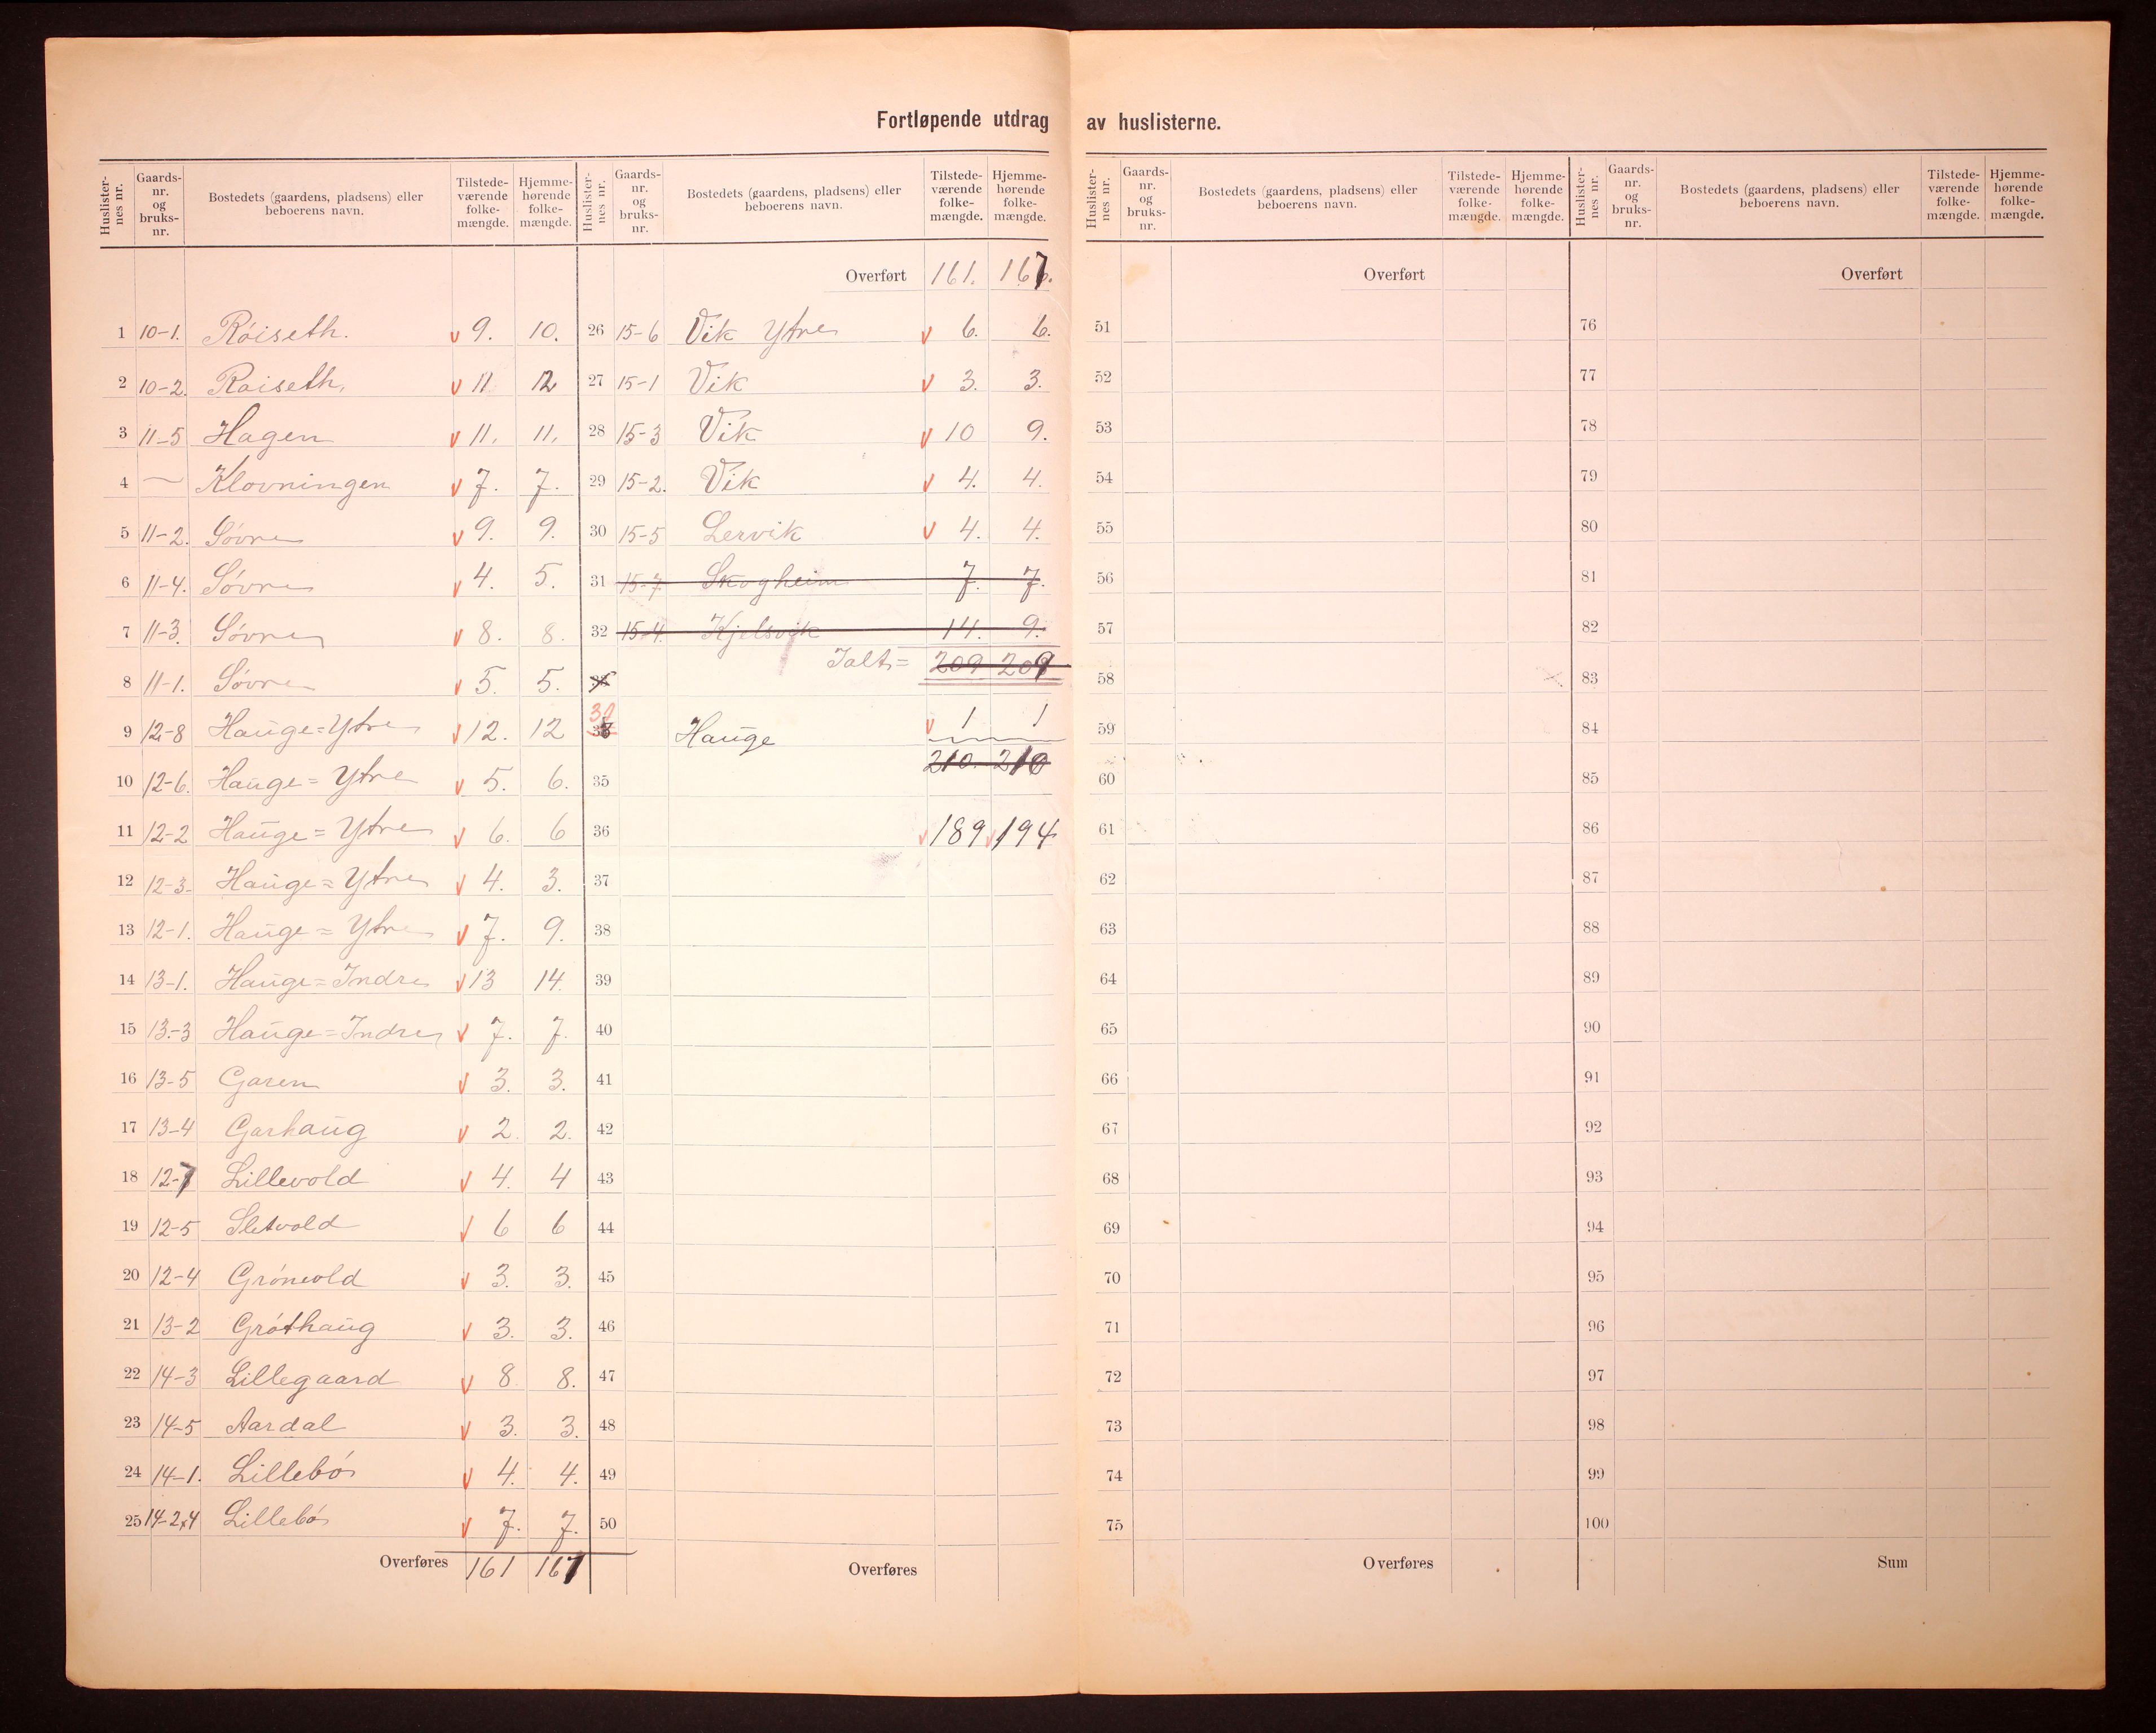 Fortløpende utdrag av huslisterne.
Huslister-nes nr. | Gaards-nr. og bruks-nr. | Bostedets (gaardens, pladsens) eller beboerens navn. | Tilstede-værende folke-mængde. | Hjemme-hørende folke-mængde.
1 10-1. Röiseth. v 9. 10.
2 10-2. Röiseth. v 11 12
3 11-5 Hagen v 11. 11.
4 — Klovningen v 7. 7.
5 11-2. Sövre v 9. 9.
6 11-4. Sövre v 4. 5.
7 11-3. Sövre v 8. 8.
8 11-1. Sövre v 5. 5.
9 12-8 Hauge=Ytre v 12. 12
10 12-6. Hauge=Ytre v 5. 6.
11 12-2 Hauge=Ytre v 6. 6
12 12-3. Hauge=Ytre v 4. 3.
13 12-1. Hauge=Ytre v 7. 9.
14 13-1. Hauge=Indre v 13 14.
15 13-3 Hauge=Indre v 7. 7.
16 13-5 Garen v 3. 3.
17 13-4 Garhaug v 2. 2.
18 12-7 Lillevold v 4. 4
19 12-5 Sletvold v 6 6
20 12-4 Grönvold v 3. 3.
21 13-2 Gröthaug v 3. 3.
22 14-3 Lillegaard v 8 8.
23 14-5 Aardal v 3. 3.
24 14-1. Lillebö v 4. 4.
25 14-2,4 Lillebö v 7. 7.
Overføres 161 167
Huslister-nes nr. | Gaards-nr. og bruks-nr. | Bostedets (gaardens, pladsens) eller beboerens navn. | Tilstede-værende folke-mængde. | Hjemme-hørende folke-mængde.
Overført 161. 167.
26 15-6 Vik Ytre v 6. 6.
27 15-1 Vik v 3. 3.
28 15-3 Vik v 10 9.
29 15-2. Vik v 4. 4.
30 15-5 Lervik v 4. 4.
31 15-7. Skogheim 7. 7.
32 15-4. Kjelsvik 14. 9.
Ialt = 209 209
Hauge v 1 1
210. 210
35
36 189 194
37
38
39
40
41
42
43
44
45
46
47
48
49
50
Overføres
Huslister-nes nr. | Gaards-nr. og bruks-nr. | Bostedets (gaardens, pladsens) eller beboerens navn. | Tilstede-værende folke-mængde. | Hjemme-hørende folke-mængde.
Overført
51
52
53
54
55
56
57
58
59
60
61
62
63
64
65
66
67
68
69
70
71
72
73
74
75
Overføres
Huslister-nes nr. | Gaards-nr. og bruks-nr. | Bostedets (gaardens, pladsens) eller beboerens navn. | Tilstede-værende folke-mængde. | Hjemme-hørende folke-mængde.
Overført
76
77
78
79
80
81
82
83
84
85
86
87
88
89
90
91
92
93
94
95
96
97
98
99
100
Sum